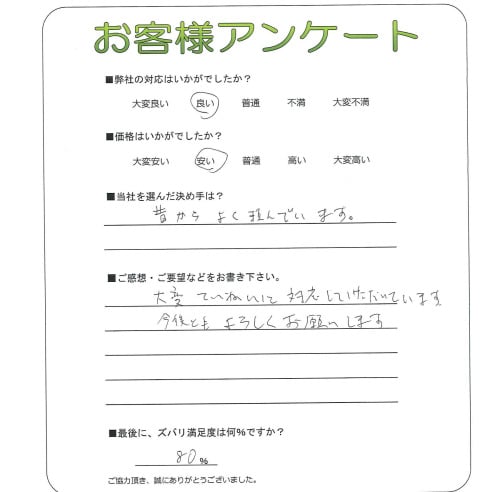 お客様アンケート
■弊社の対応はいかがでしたか？
大変良い 良い 普通 不満 大変不満
■価格はいかがでしたか？
大変安い 安い 普通 高い 大変高い
■当社を選んだ決め手は？
昔から よく頼んでいます。
■ご感想・ご要望などをお書き下さい。
大変 ていねいに 対応していただいています
今後とも よろしくお願いします
■最後に、ズバリ満足度は何％ですか？
80％
ご協力頂き、誠にありがとうございました。